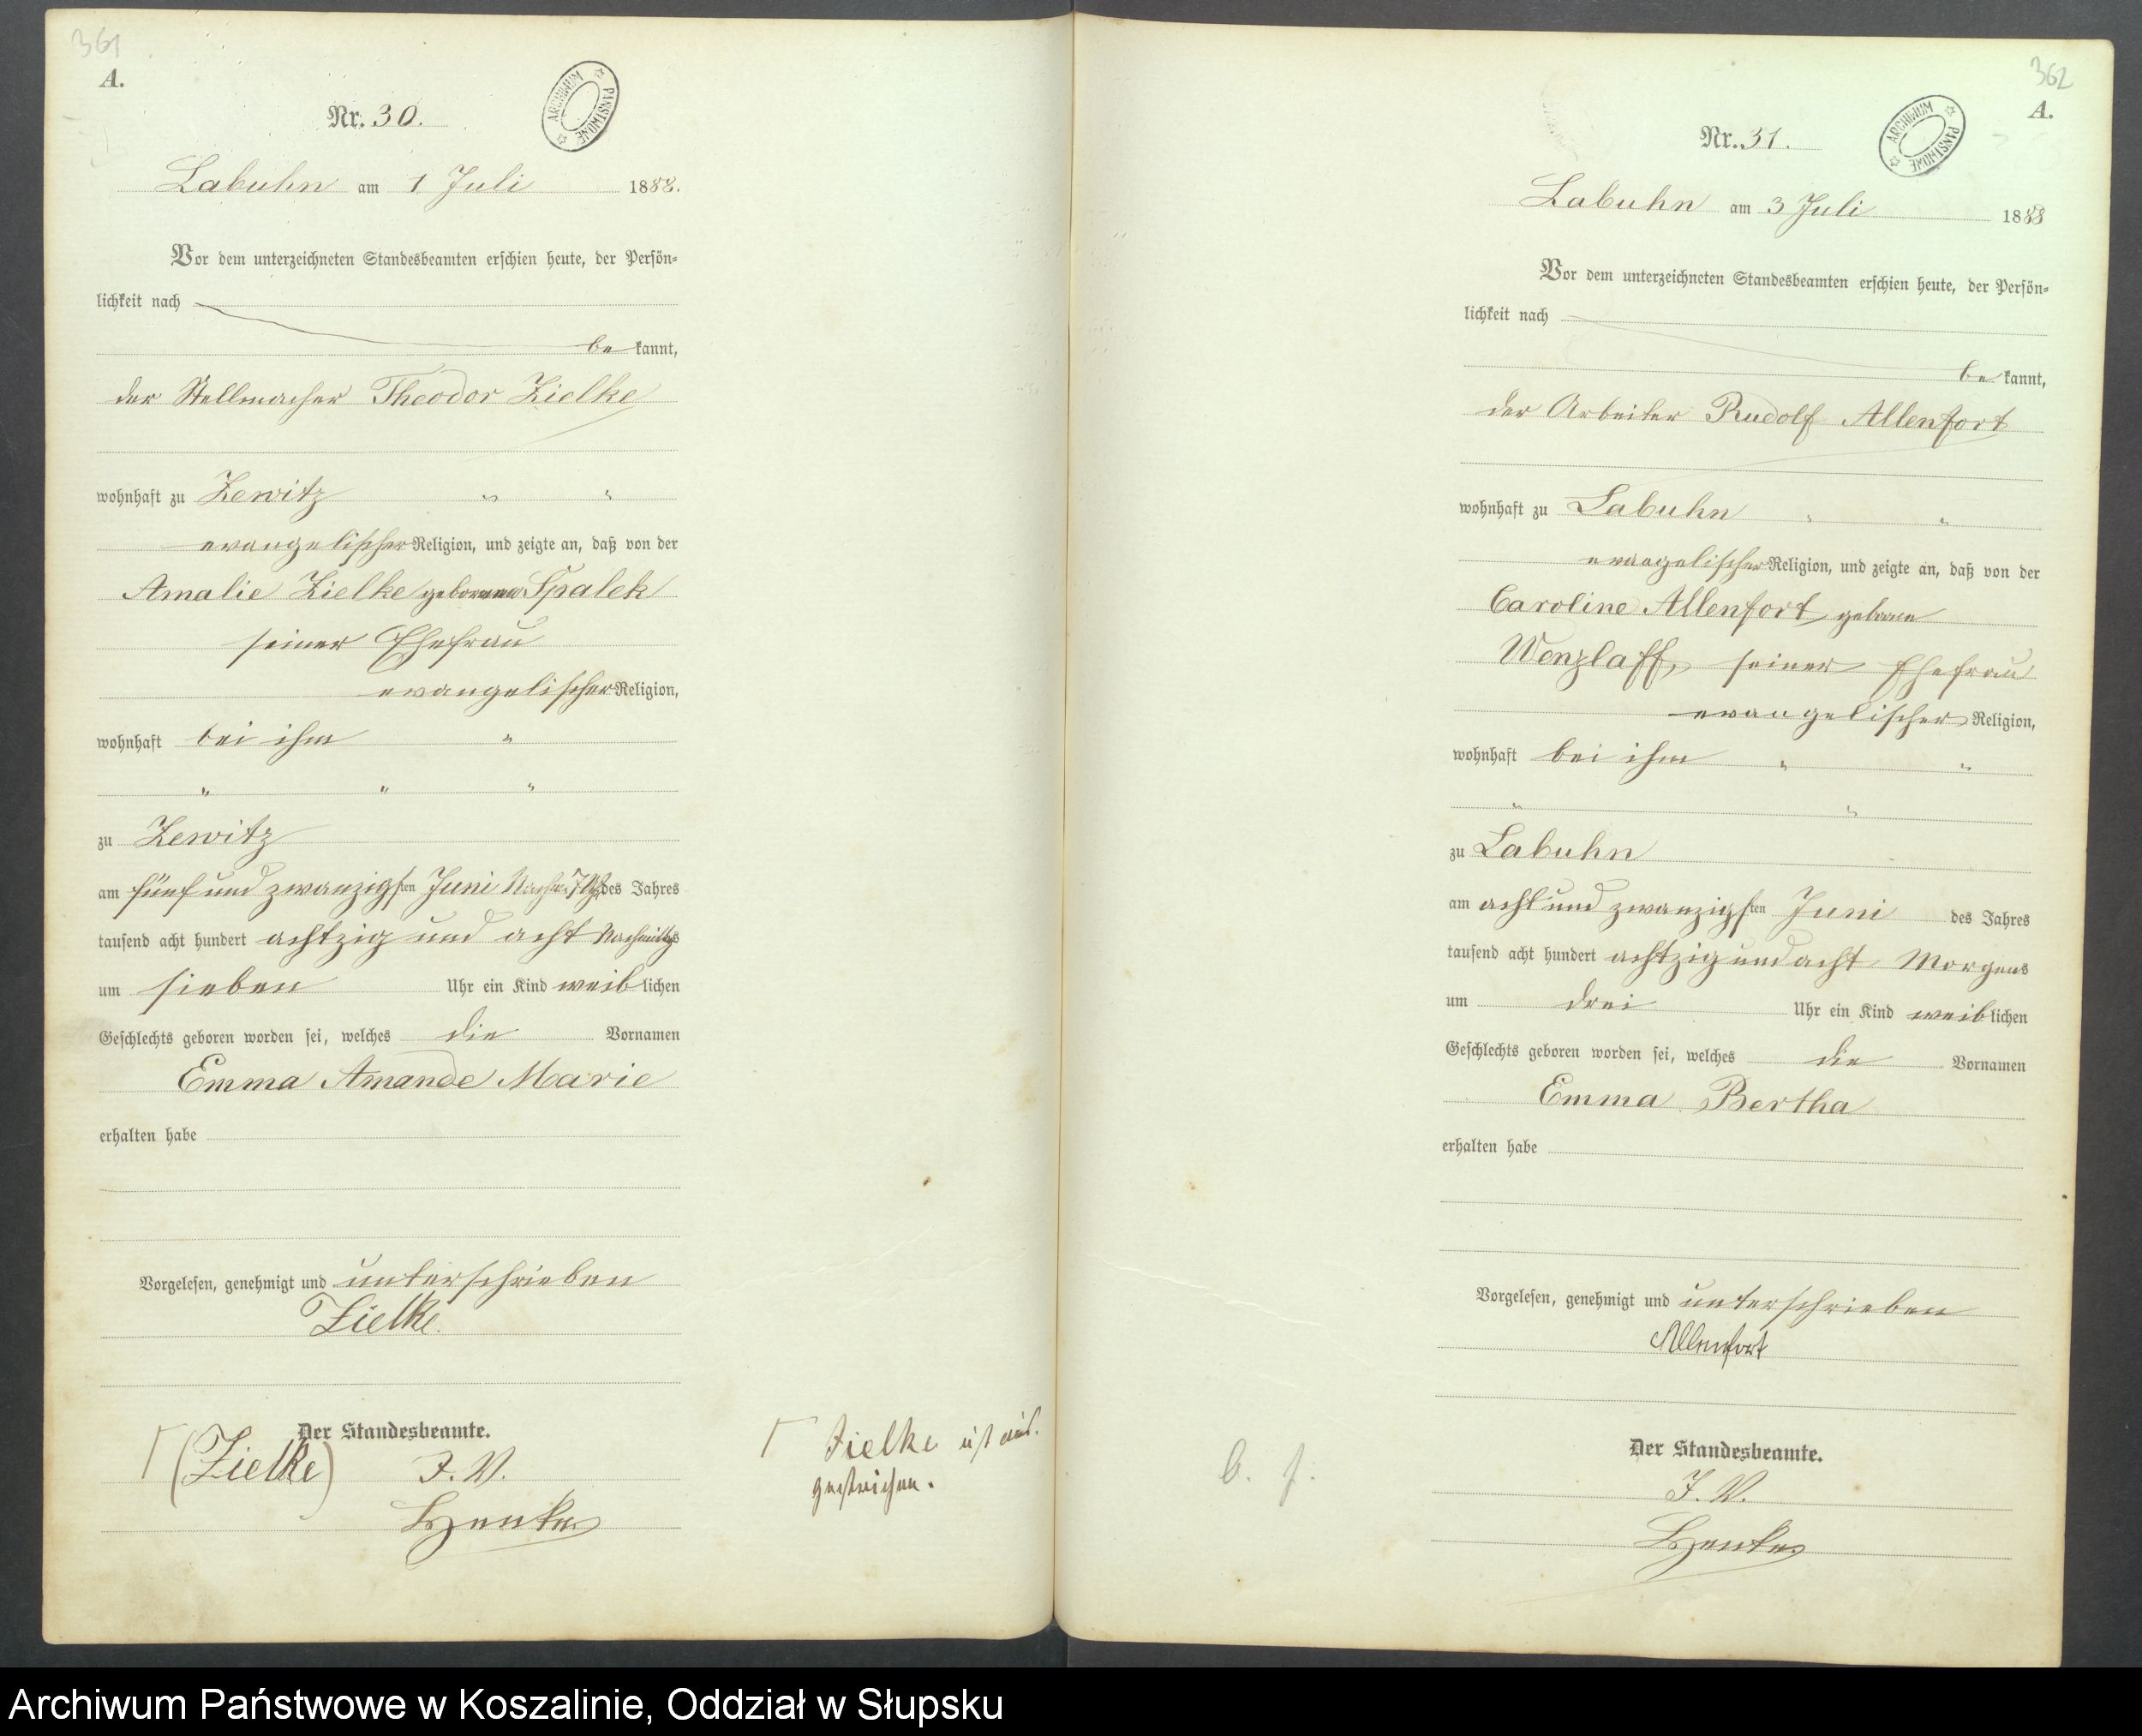 361
A.
Nr. 30.
ARCHIWUM PAŃSTWOWE
Labuhn am 1 Juli 1888.
Vor dem unterzeichneten Standesbeamten erschien heute, der Persön-
lichkeit nach
be kannt,
der Stellmacher Theodor Zielke
wohnhaft zu Zewitz " "
evangelischer Religion, und zeigte an, daß von der
Amalie Zielke geborenen Spalek
seiner Ehefrau
evangelischer Religion,
wohnhaft bei ihm "
" " "
zu Zewitz
am fünf und zwanzigsten Juni Nachm. 7 Uhr des Jahres
tausend acht hundert achtzig und acht Nachmittgs
um sieben Uhr ein Kind weiblichen
Geschlechts geboren worden sei, welches die Vornamen
Emma Amande Marie
erhalten habe
Vorgelesen, genehmigt und unterschrieben
Zielke.
Der Standesbeamte.
Γ (Zielke) J. V.
Γ Zielke ist aus-
gestrichen.
362
A.
Nr. 31.
ARCHIWUM PAŃSTWOWE
Labuhn am 3 Juli 1888
Vor dem unterzeichneten Standesbeamten erschien heute, der Persön-
lichkeit nach
be kannt,
der Arbeiter Rudolf Allenfort
wohnhaft zu Labuhn " "
evangelischer Religion, und zeigte an, daß von der
Caroline Allenfort, geborne
Wenzlaff, seiner Ehefrau
evangelischer Religion,
wohnhaft bei ihm " "
" "
zu Labuhn
am acht und zwanzigsten Juni des Jahres
tausend acht hundert achtzig und acht Morgens
um drei Uhr ein Kind weiblichen
Geschlechts geboren worden sei, welches die Vornamen
Emma Bertha
erhalten habe
Vorgelesen, genehmigt und unterschrieben
Allenfort
Der Standesbeamte.
J. V.
Archiwum Państwowe w Koszalinie, Oddział w Słupsku